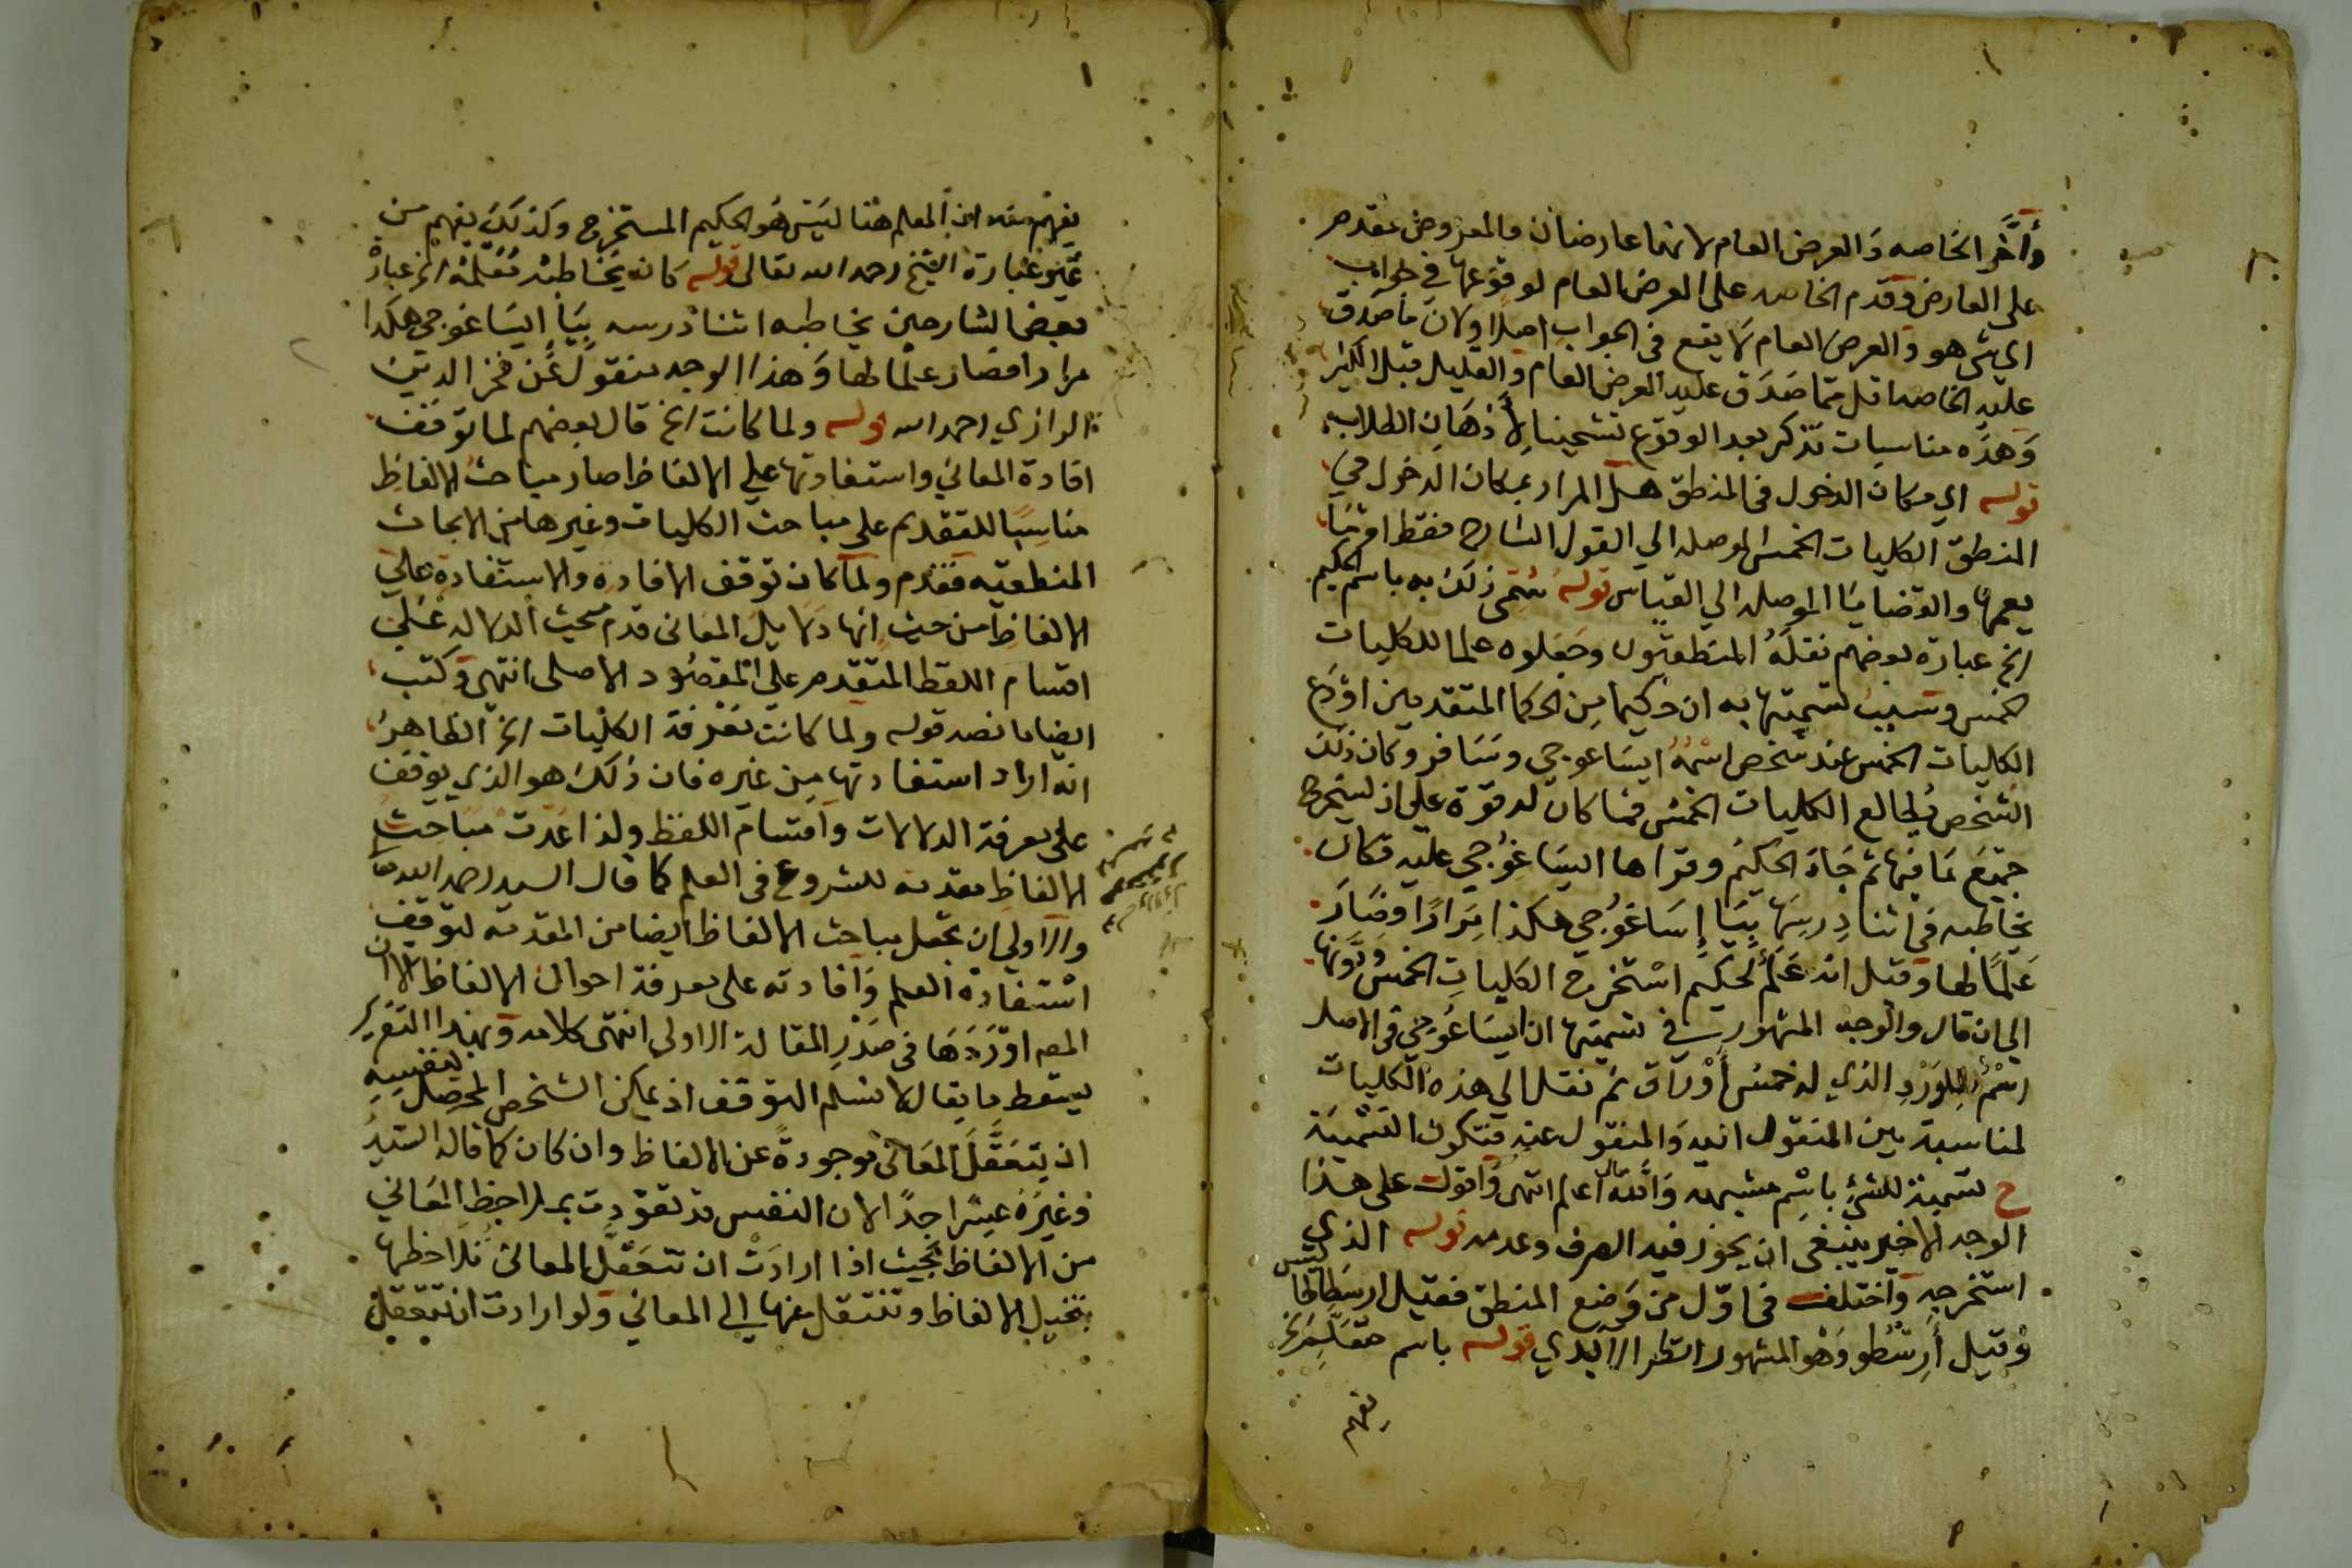 وأخر الخاصه والعرض العام لانهما عارضان والمعروض مقدم
على العارض وقدم الخاصه على العرض العام لوقوعها في جواب
اي شي هو والعرض العام لا يقع في الجواب اصلا ولان ما صدق
عليه الخاصه اقل مما صدق عليه العرض العام والقليل قبل الكثير
وهذه مناسبات تذكر بعد الوقوع تشحيذا لأذهان الطلاب
قوله اي مكان الدخول في المنطق هل المراد بمكان الدخول في
المنطق الكليات الخمس الموصله الي القول الشارح فقط او ما
يعمها والقضايا الموصله الي القياس قوله سُمّي ذلك به باسم الحكيم
الخ عبارة بعضهم نقله المنطقيون وجعلوه علما للكليات
الخمس وسبب تسميتها به ان حكيما من الحكما المتقدمين اودع
الكليات الخمس عند شخص اسمه ايساغوجي وسافر وكان ذلك
الشخص يُطالع الكليات الخمس فما كان له قوة على ان يستخرج
جميع ما فيها ثم جاء الحكيم وقراها ايساغوجي عليه فكان
يخاطبه في اثنا درسها بيا إيساغوجي هكذا مرارا فصار
عَلَمًا لها وقيل انه عَلَم لحكيم استخرج الكليات الخمس ودونها
الي ان قال والوجه المشهور في تسميتها ان ايساغوجي في الاصل
اسم للورد الذي له خمس أوراق ثم نقل الي هذه الكليات
لمناسبة بين المنقول اليه والمنقول عنه فتكون التسمية
ح تسمية للشئ باسم مشبهه والله تعالى اعلم انتهى واقول على هذا
الوجه الاخير ينبغي ان يجوز فيه الصرف وعدمه قوله الذي
استخرجه واختلف في اوّل من وضع المنطق فقيل ارسطاطاليس
وقيل أرسطو وهو المشهور انظر الابدي قوله باسم متعلم الخ
يفهم
يفهم منه ان المعلم هنا ليس هو الحكيم المستخرج وكذلك يفهم من
غير عبارة الشيخ رحمه الله تعالى قوله كان يخاطبه مُعَلّمه الخ عبارة
بعض الشارحين يخاطبه اثنا درسه بيا إيساغوجي هكذا
مرارا فصار علما لها وهذا الوجه منقول عن فخر الدين
الرازي رحمه الله قوله ولما كانت الخ قال بعضهم لما توقف
افادة المعاني واستفادتها علي الالفاظ صار مباحث الالفاظ
مناسبا للتقديم على مباحث الكليات وغيرها من الابحاث
المنطقيه فقدم ولما كان توقف الافادة والاستفادة علي
الالفاظ من حيث انها دلايل المعاني قدم مبحث الدلاله علي
اقسام اللفظ المتقدم علي المقصود الاصلى انتهى وكتب
ايضا ما نصه قوله ولما كانت معرفة الكليات الخ الظاهر
انه اراد استفادتها من غيره فان ذلك هو الذي يوقف
على معرفة الدلالات واقسام اللفظ ولذا عُدت مباحث
الالفاظ مقدمه للشروع في العلم كما قال السيد رحمه الله
والاولي ان تجعل مباحث الالفاظ ايضا من المقدمه لتوقف
استفادة العلم وافادته على معرفة احوال الالفاظ الا ان
المصـ اوردها في صدر المقالة الاولى انتهى كلامه وبهذا التقرير
يسقط ما يقال لا نسلم التوقف اذ يمكن الشخص المحصل لنفسه
ان يتعقل المعاني موجودة عن الالفاظ وان كان كما قاله السيد
وغيره عسرا جدا لان النفس قد تعودت بملاحظ المعاني
من الالفاظ بحيث اذا ارادت ان تتعقل المعاني فلاحظها
بتخيل الالفاظ وتنتقل منها الي المعاني ولو ارادت ان تتعقل